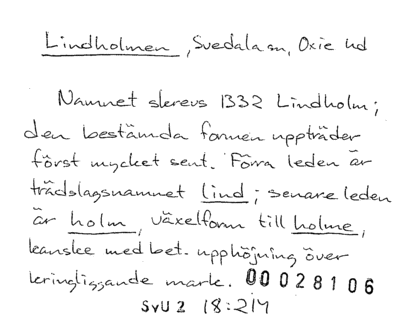 Lindholmen, Svedala sn, Oxie hd
Namnet skrevs 1332 Lindholm;
den bestämda formen uppträder
först mycket sent. Förra leden är
trädslagsnamnet lind; senare leden
är holm, växelform till holme,
kanske med bet. upphöjning över
kringliggande mark. 00028106
SvU 2 18:214